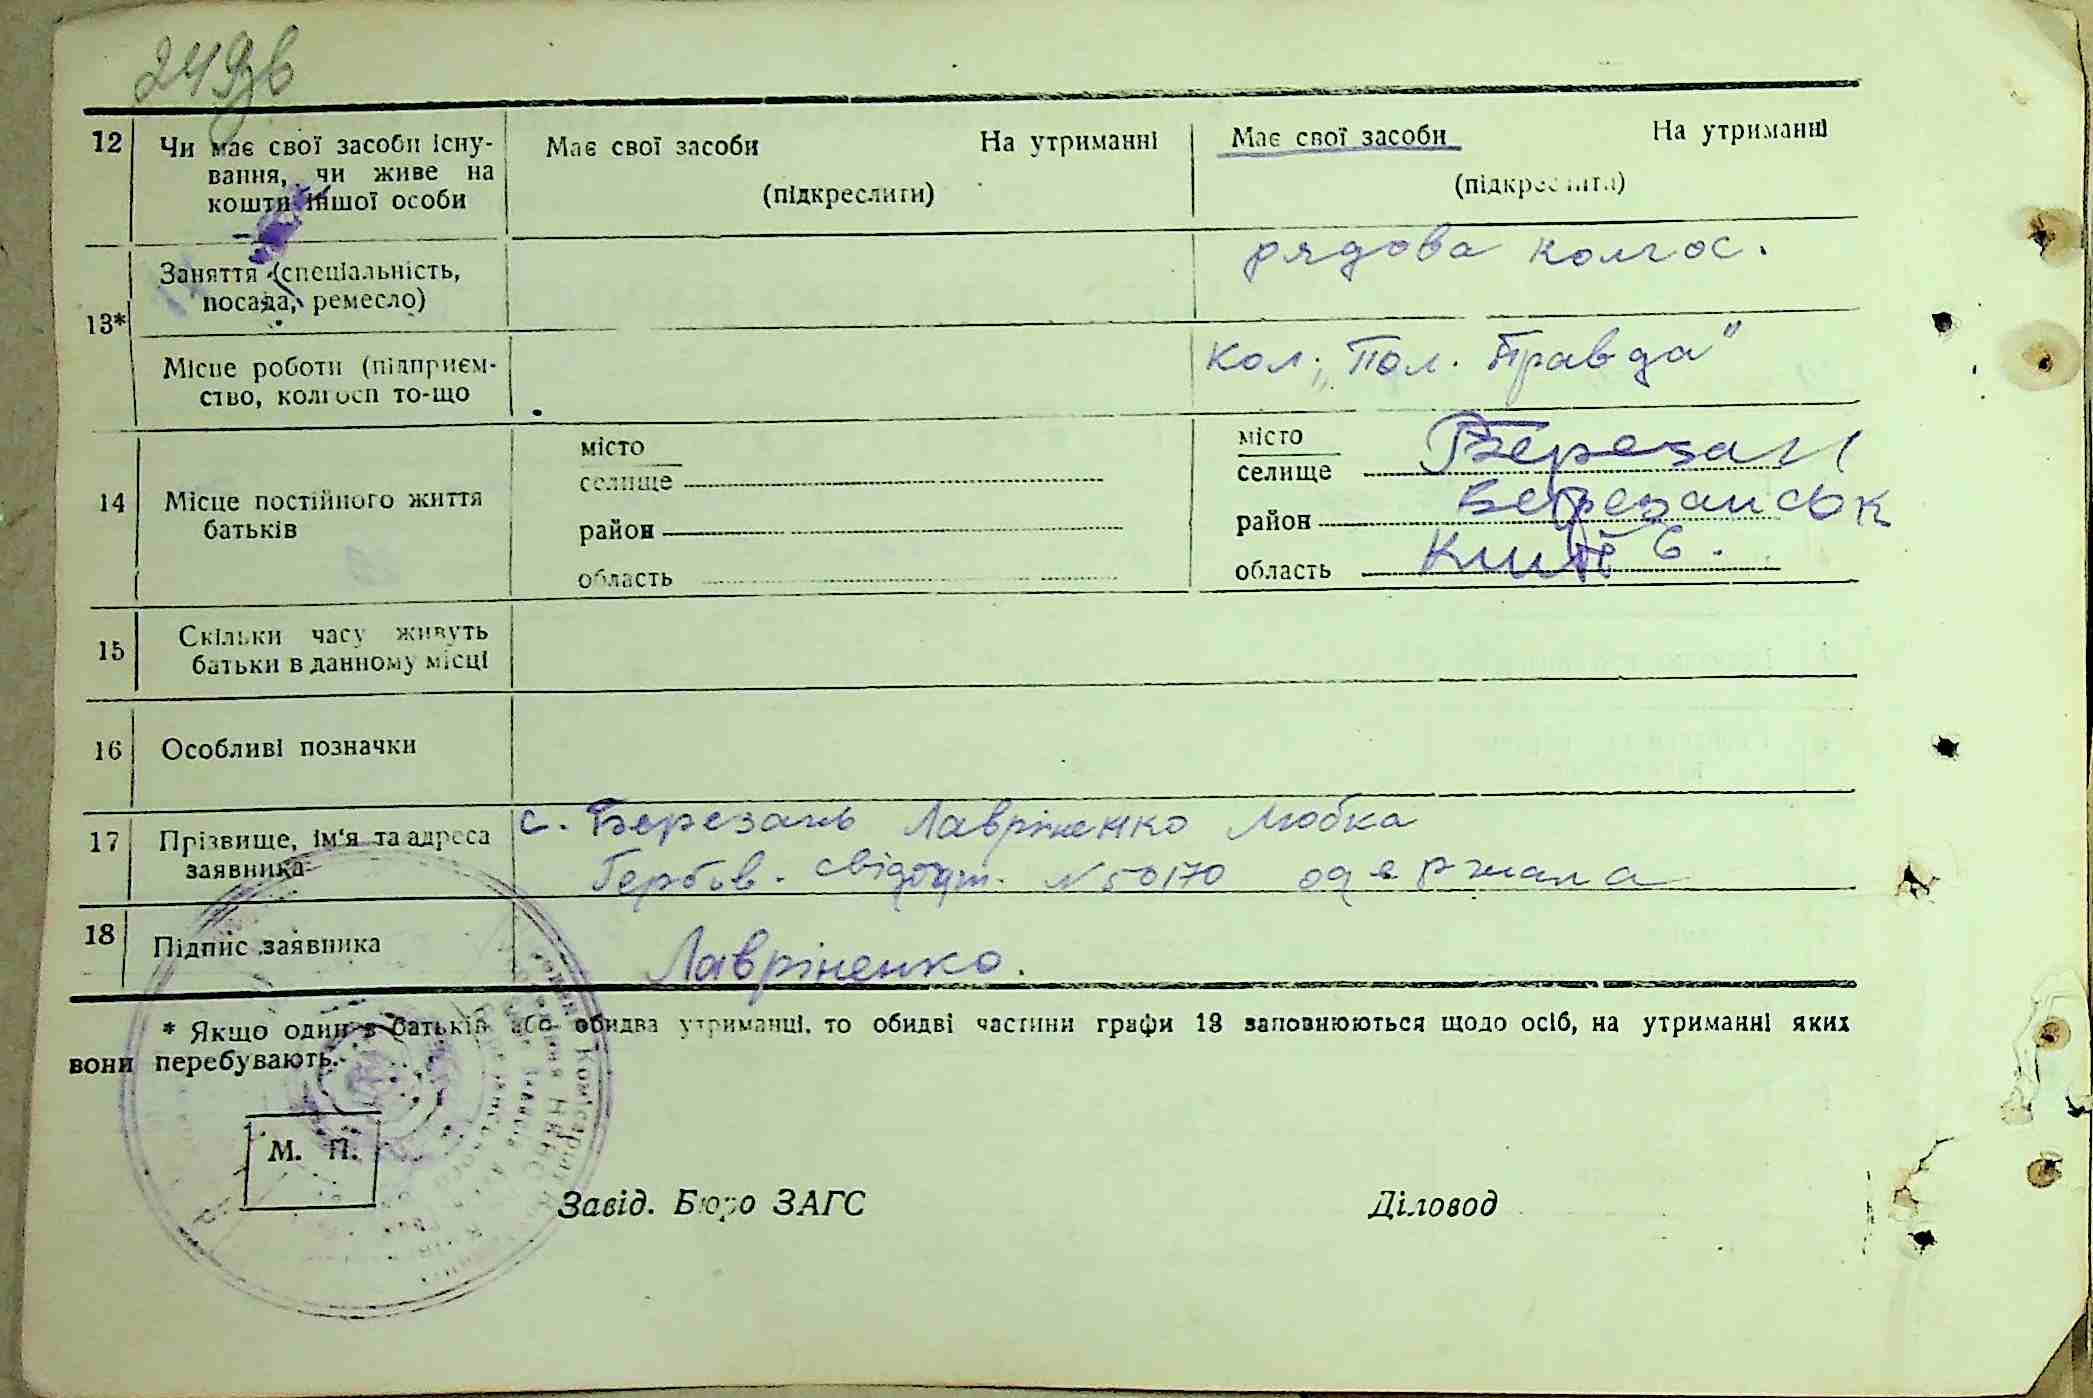 249зв
12 Чи має свої засоби існу- Має свої засоби На утриманні Має свої засоби На утриманні
вання, чи живе на (підкреслити) (підкреслити)
кошти іншої особи
Заняття (спеціальність, рядова колгос.
посада, ремесло)
13*
Місце роботи (підприєм- кол; „Пол. Правда"
ство, колгосп то-що
місто місто
селище селище Березань
14 Місце постійного життя район район Березанськ
батьків область область Київ.
15 Скільки часу живуть
батьки в данному місці
16 Особливі позначки
17 Прізвище, ім'я та адреса с. Березань Лавріненко Любка
заявника Гербов. свідоцт. N 50170 одержала
18 Підпис заявника Лавріненко.
* Якщо один з батьків або обидва утриманці, то обидві частини графи 13 заповнюються щодо осіб, на утриманні яких
вони перебувають.
М. П.
Завід. Бюро ЗАГС Діловод